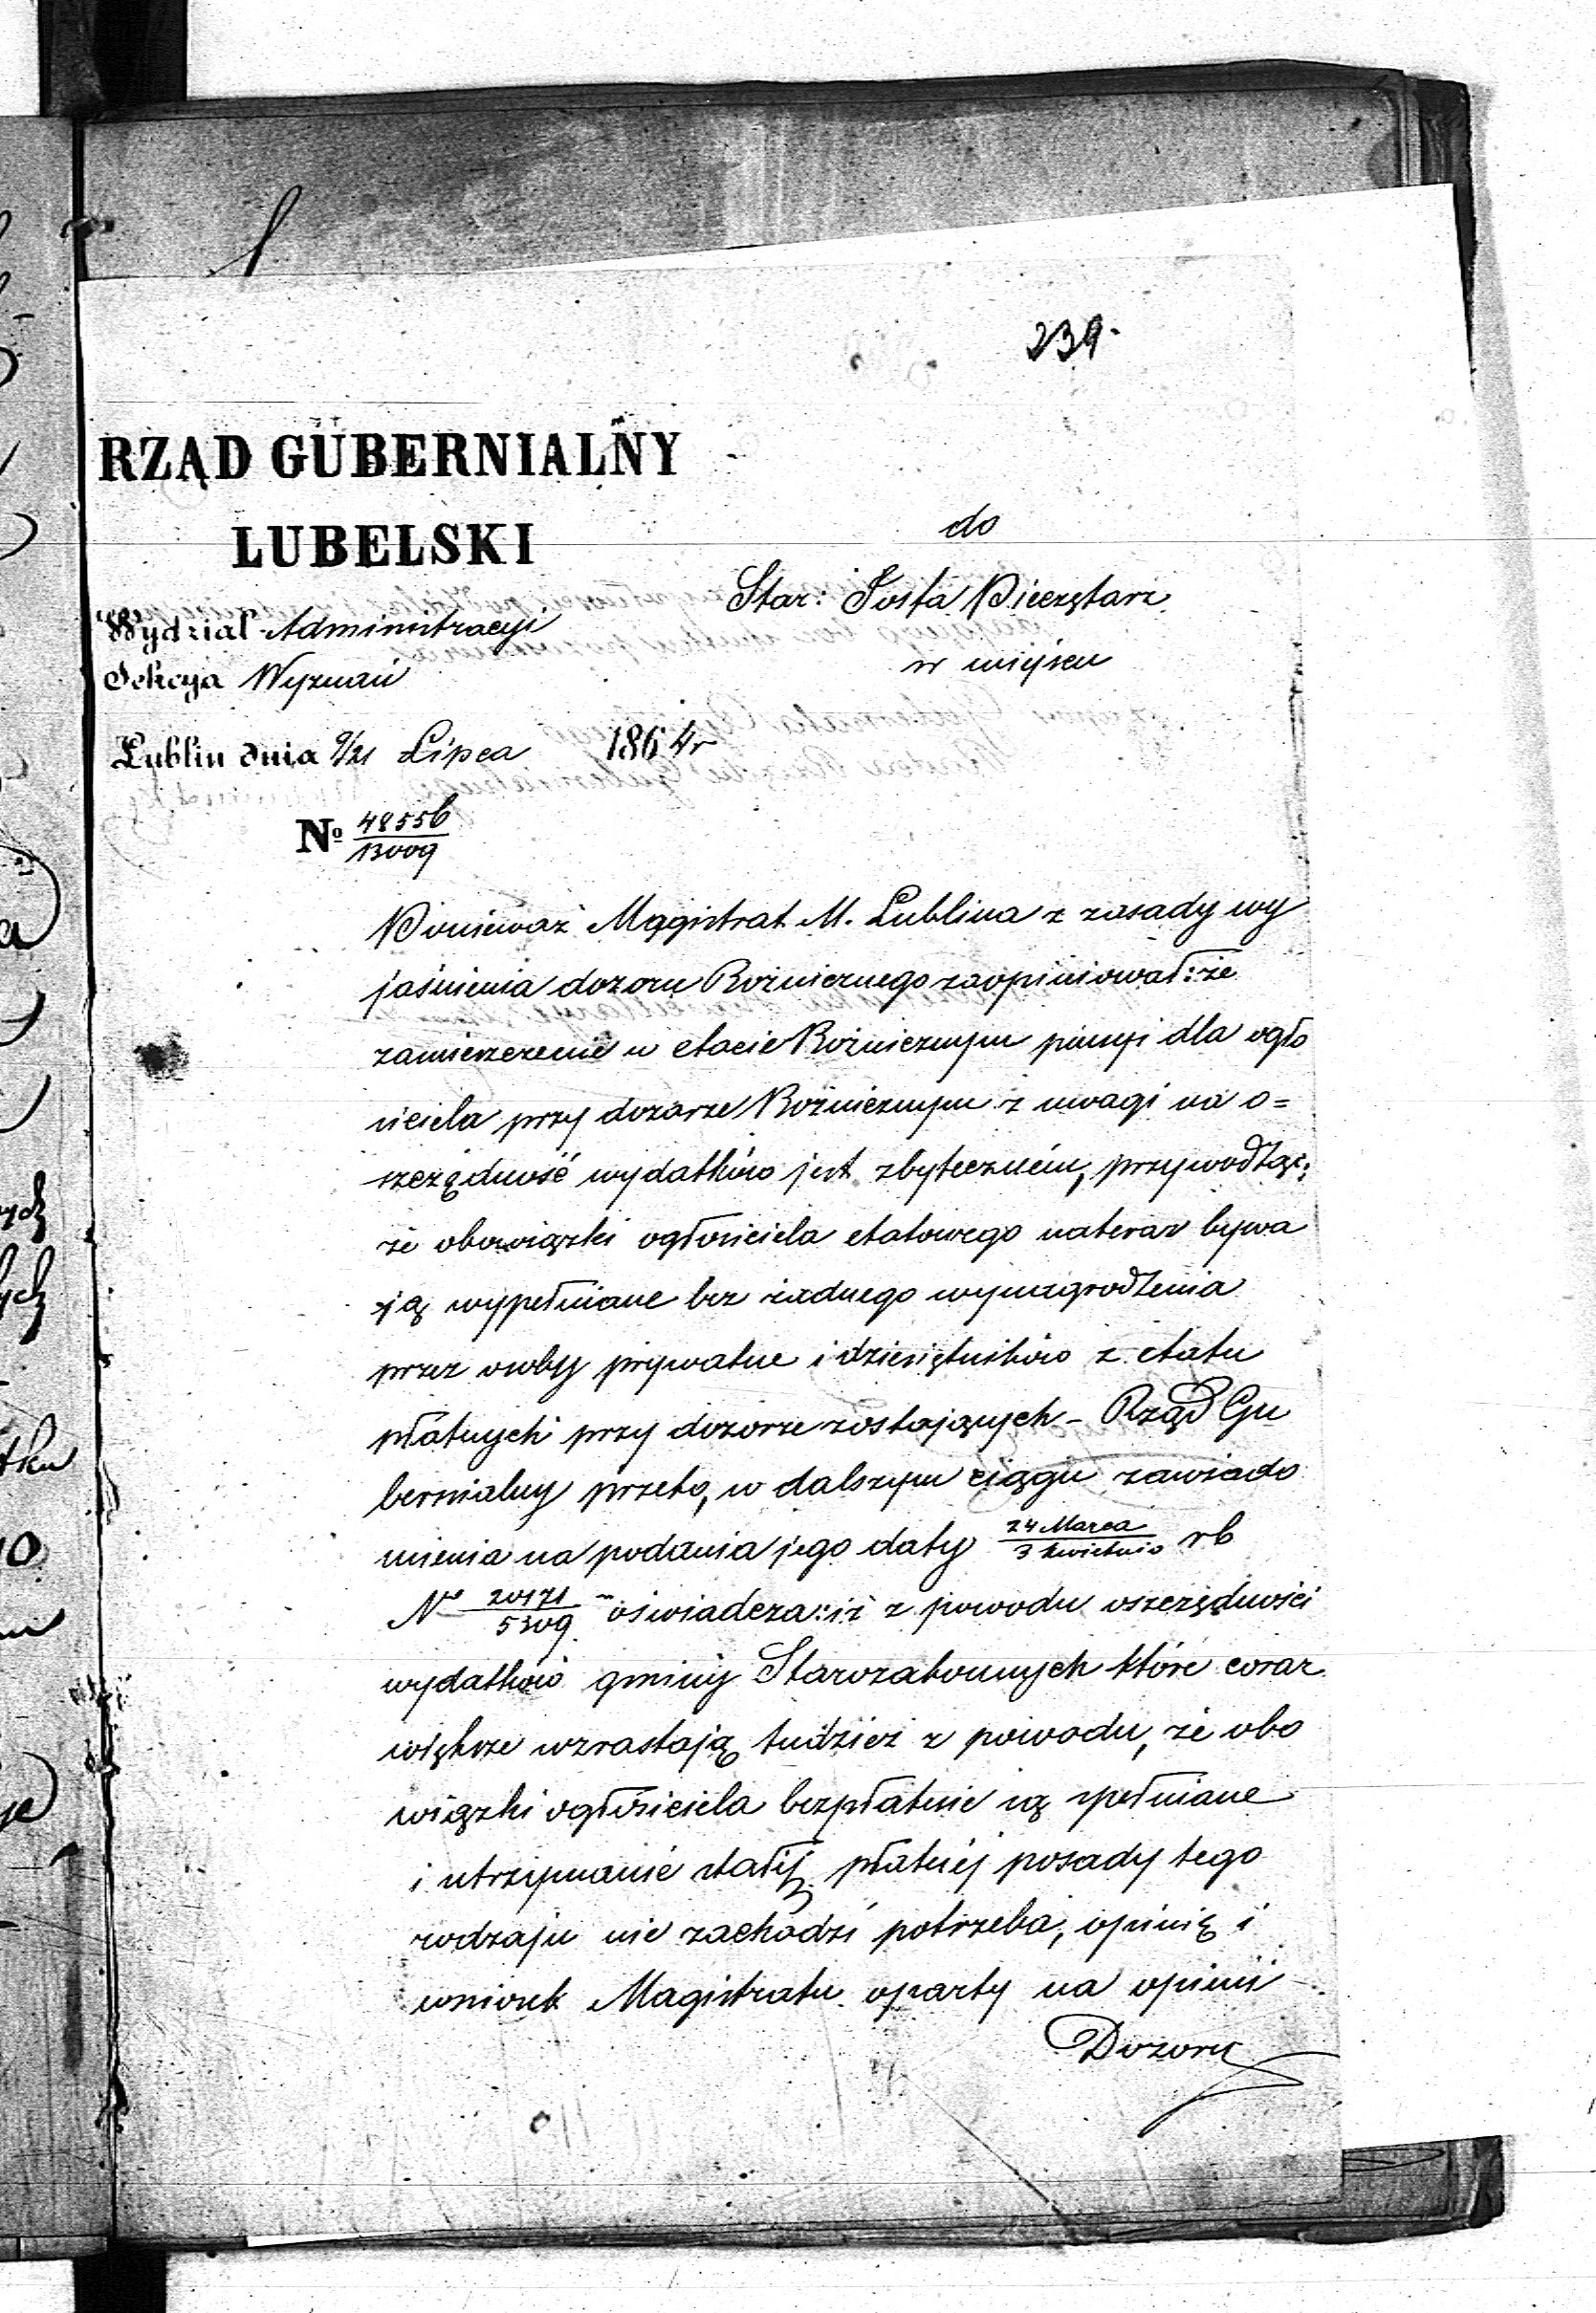 239.
RZĄD GUBERNIALNY
LUBELSKI
Wydział Administracyi
Sekcya Wyznań
Lublin dnia 9/21 Lipca 1864 r
No 48556/13009
do
Star: Josfa Pieczętarz
w miejscu
Ponieważ Magistrat M. Lublina z zasady wy
jaśnienia dozoru Bożniczego zaopiniował: że
zamieszczenie w etacie Bożnicznym pensyi dla ogło
siciela przy dozorze Bożnicznym z uwagi na o=
szczędność wydatków jest zbytecznem, przywodząc:
że obowiązki ogłosiciela etatowego nateraz bywa
ją wypełniane bez żadnego wynagrodzenia
przez osoby prywatne i dziesiętników z etatu
płatnych przy dozorze zostających – Rząd Gu
bernialny przeto, w dalszym ciągu zawiado
mienia na podania jego daty 24 Marca/3 kwietnia rb
No 20171/5309 oświadcza: iż z powodu oszczędności
wydatków gminy Starozakonnych które coraz
większe wzrastają tudzież z powodu, że obo
wiązki ogłosiciela bezpłatnie są spełniane
i utrzymanie stałej płatnéj posady tego
rodzaju nie zachodzi potrzeba, opinię i
wniosek Magistratu oparty na opinii
Dozoru